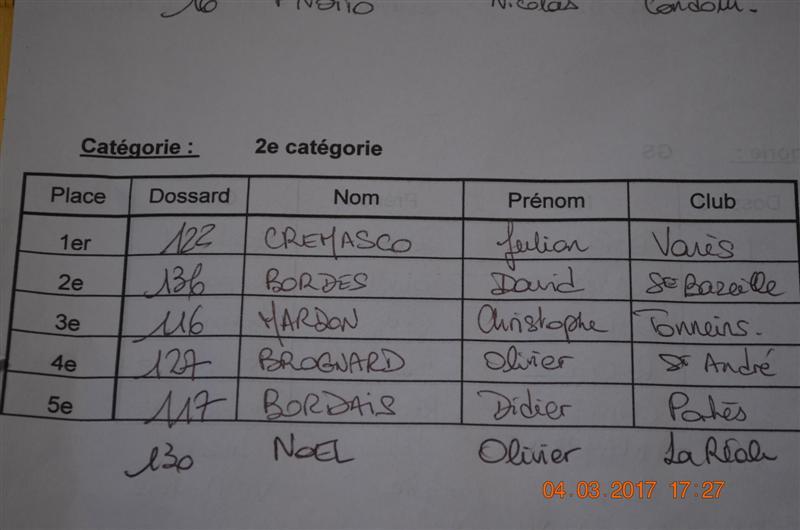 16 Nicolas Condom.
Catégorie : 2e catégorie
Place Dossard Nom Prénom Club
1er 122 CREMASCO Julian Varès
2e 136 BORDES David Ste Bazeille
3e 116 MARDON Christophe Tonneins.
4e 127 BROGNARD Olivier St André
5e 117 BORDAIS Didier
130 NOEL Olivier La Réole
04.03.2017 17:27